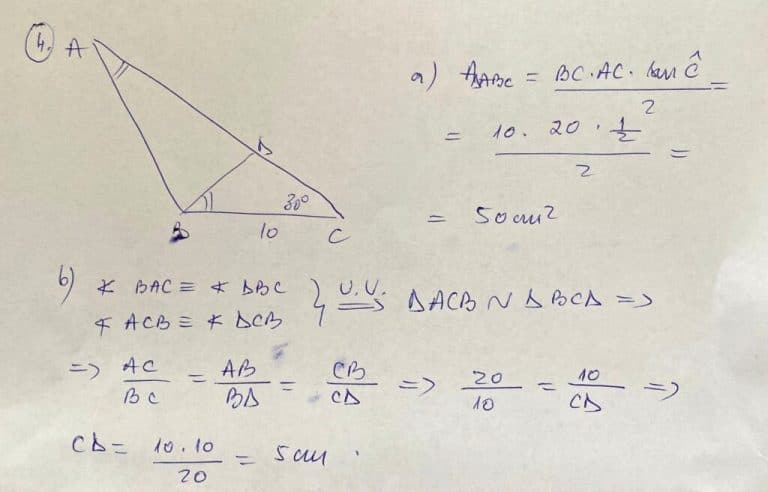 4.
A
D
30°
B 10 C
a) A△ABC = BC·AC·sin Ĉ / 2 =
= 10 · 20 · 1/2 / 2 =
= 50 cm²
b) ∢ BAC ≡ ∢ DBC
∢ ACB ≡ ∢ DCB } U.U. ⟹ ΔACB ~ ΔBCD =>
=> AC/BC = AB/BD = CB/CD => 20/10 = 10/CD =>
CD = 10 . 10 / 20 = 5 cm .